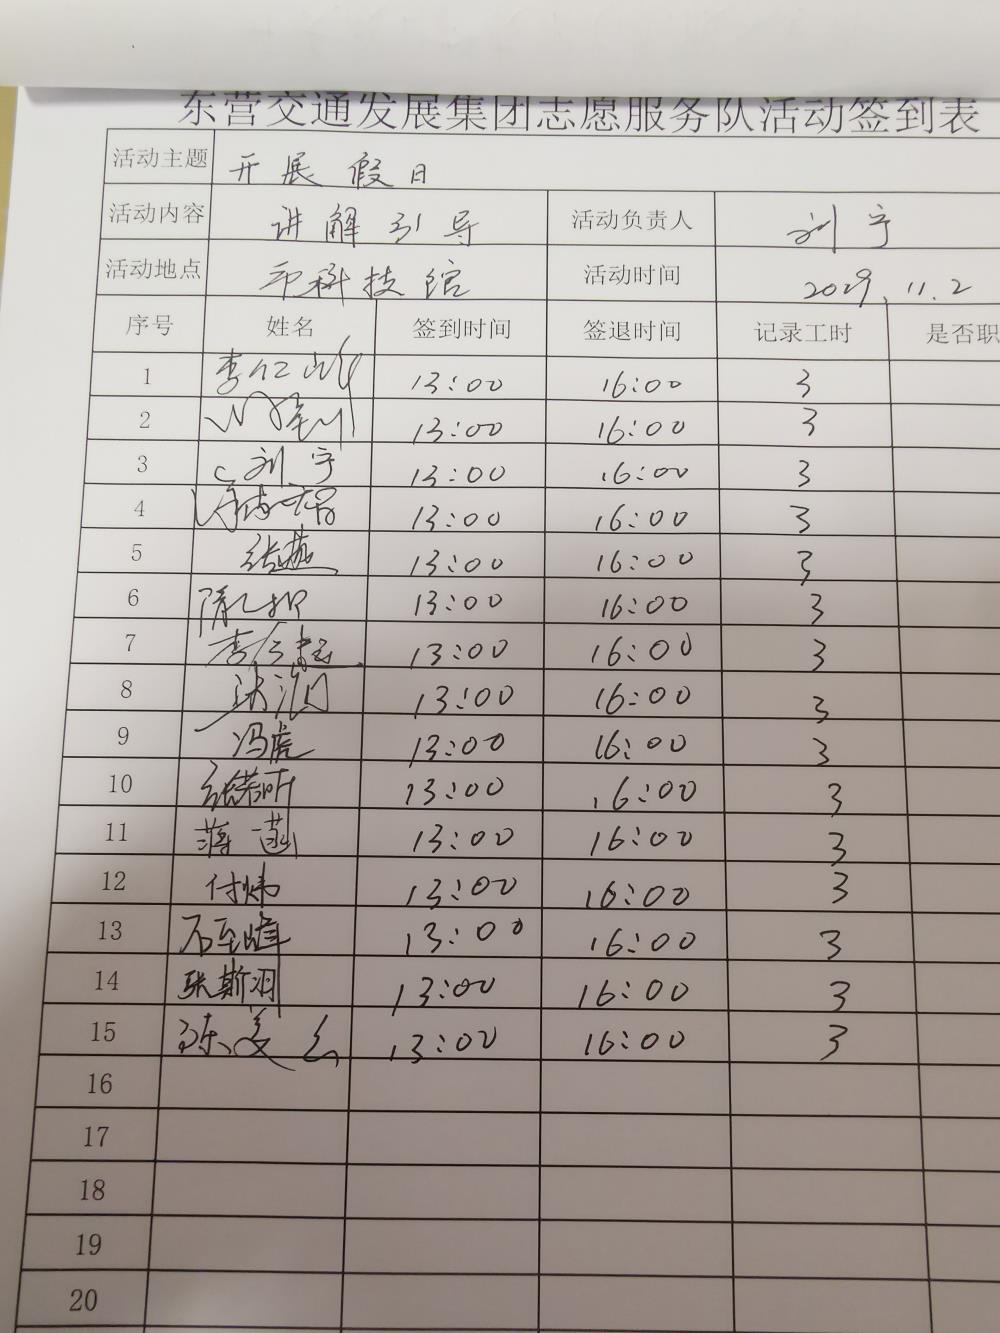 东营交通发展集团志愿服务队活动签到表
活动主题 开展假日
活动内容 讲解引导 活动负责人 刘宁
活动地点 市科技馆 活动时间 11.2
序号 姓名 签到时间 签退时间 记录工时 是否职
1 13:00 16:00 3
2 13:00 16:00 3
3 刘宁 13:00 16:00 3
4 13:00 16:00 3
5 张燕 13:00 16:00 3
6 13:00 16:00 3
7 13:00 16:00 3
8 13:00 16:00 3
9 冯虎 13:00 16:00 3
10 张若昕 13:00 16:00 3
11 蒋一菡 13:00 16:00 3
12 付炜 13:00 16:00 3
13 13:00 16:00 3
14 张斯羽 13:00 16:00 3
15 13:00 16:00 3
16
17
18
19
20